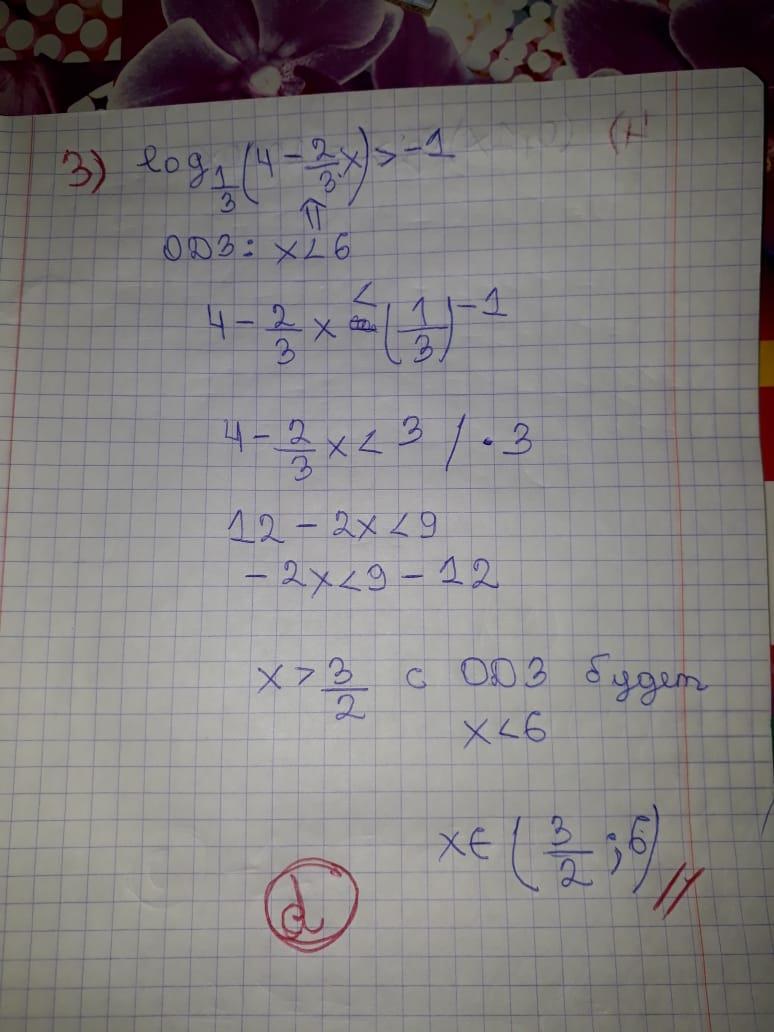 3) log_{1/3}(4 - 2/3 x) > -1
⇑
ОДЗ: x < 6
4 - 2/3 x < (1/3)^{-1}
4 - 2/3 x < 3 / · 3
12 - 2x < 9
- 2x < 9 - 12
x > 3/2 с ОДЗ будет
x < 6
x ∈ (3/2 ; 6) //
d